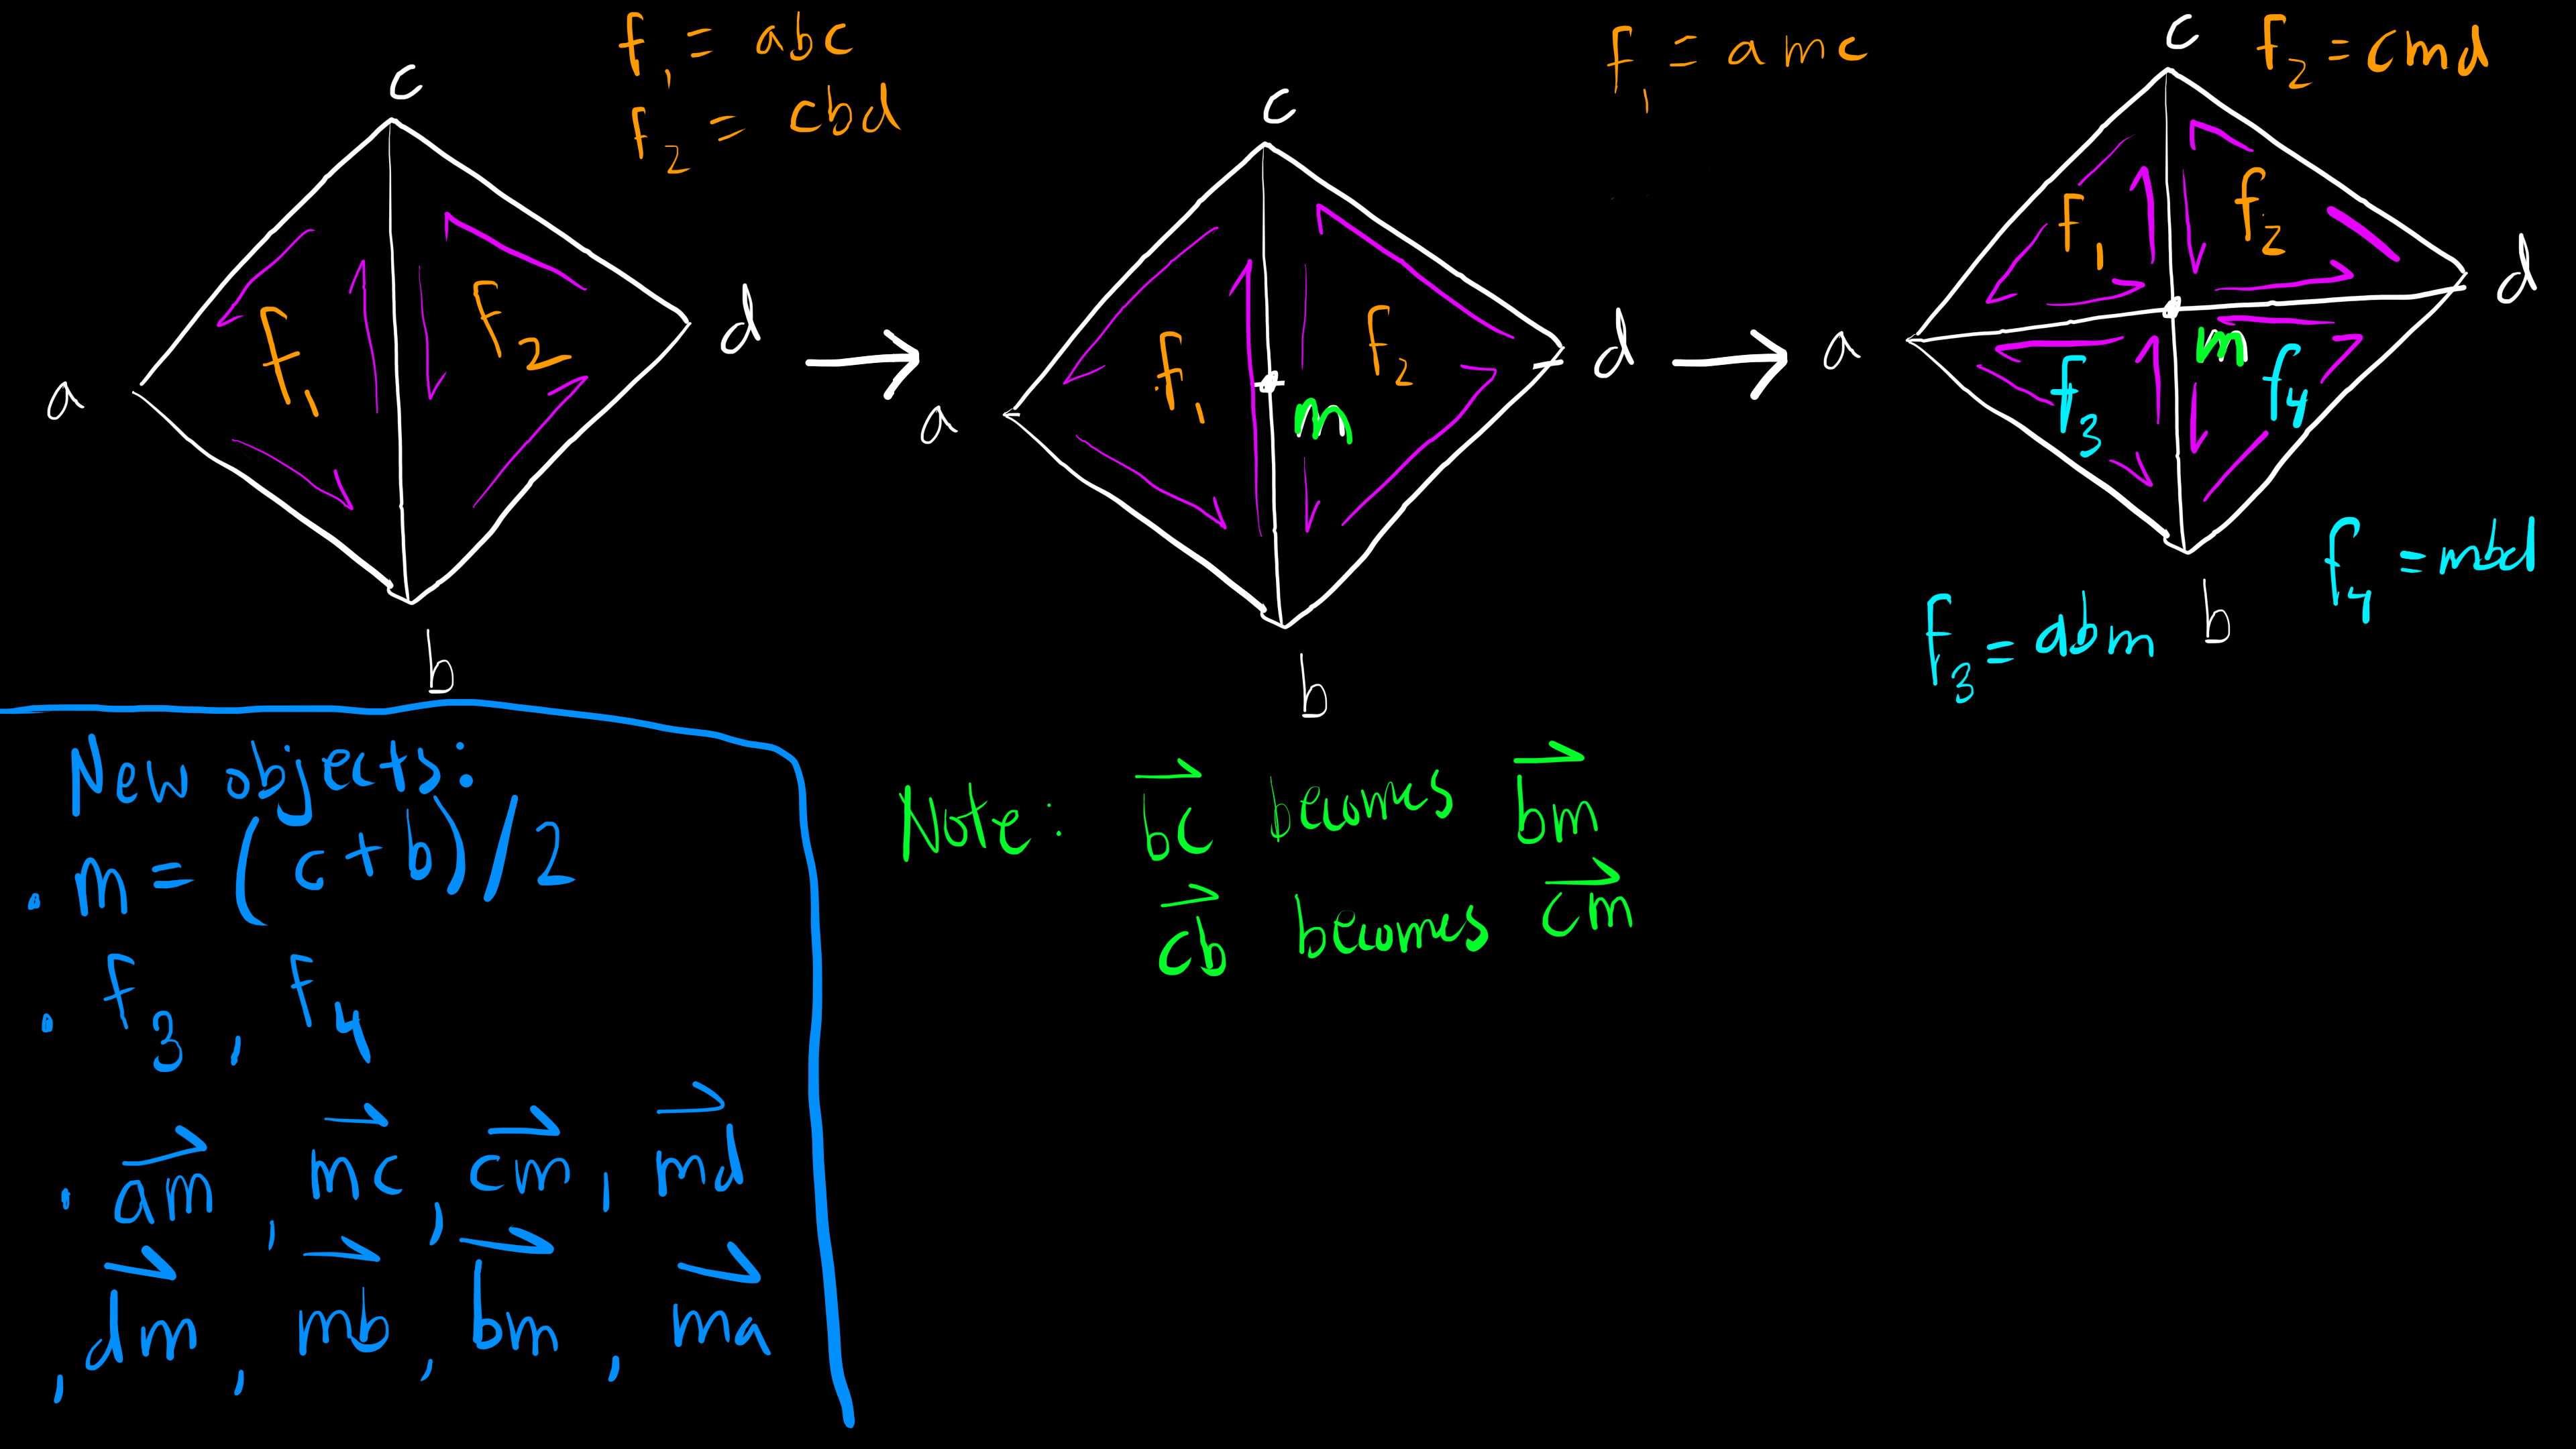 f₁ = abc
f₂ = cbd
c
a
f₁
f₂
d
b
c
a
f₁
f₂
m
d
b
f₁ = amc
f₂ = cmd
c
f₁
f₂
a
m
d
f₃
f₄
f₄ = mbd
f₃ = abm
b
New objects:
. m = (c+b)/2
. f₃, f₄
. am⃗, mc⃗, cm⃗, md⃗
, dm⃗, mb⃗, bm⃗, ma⃗
Note: bc⃗ becomes bm⃗
cb⃗ becomes cm⃗